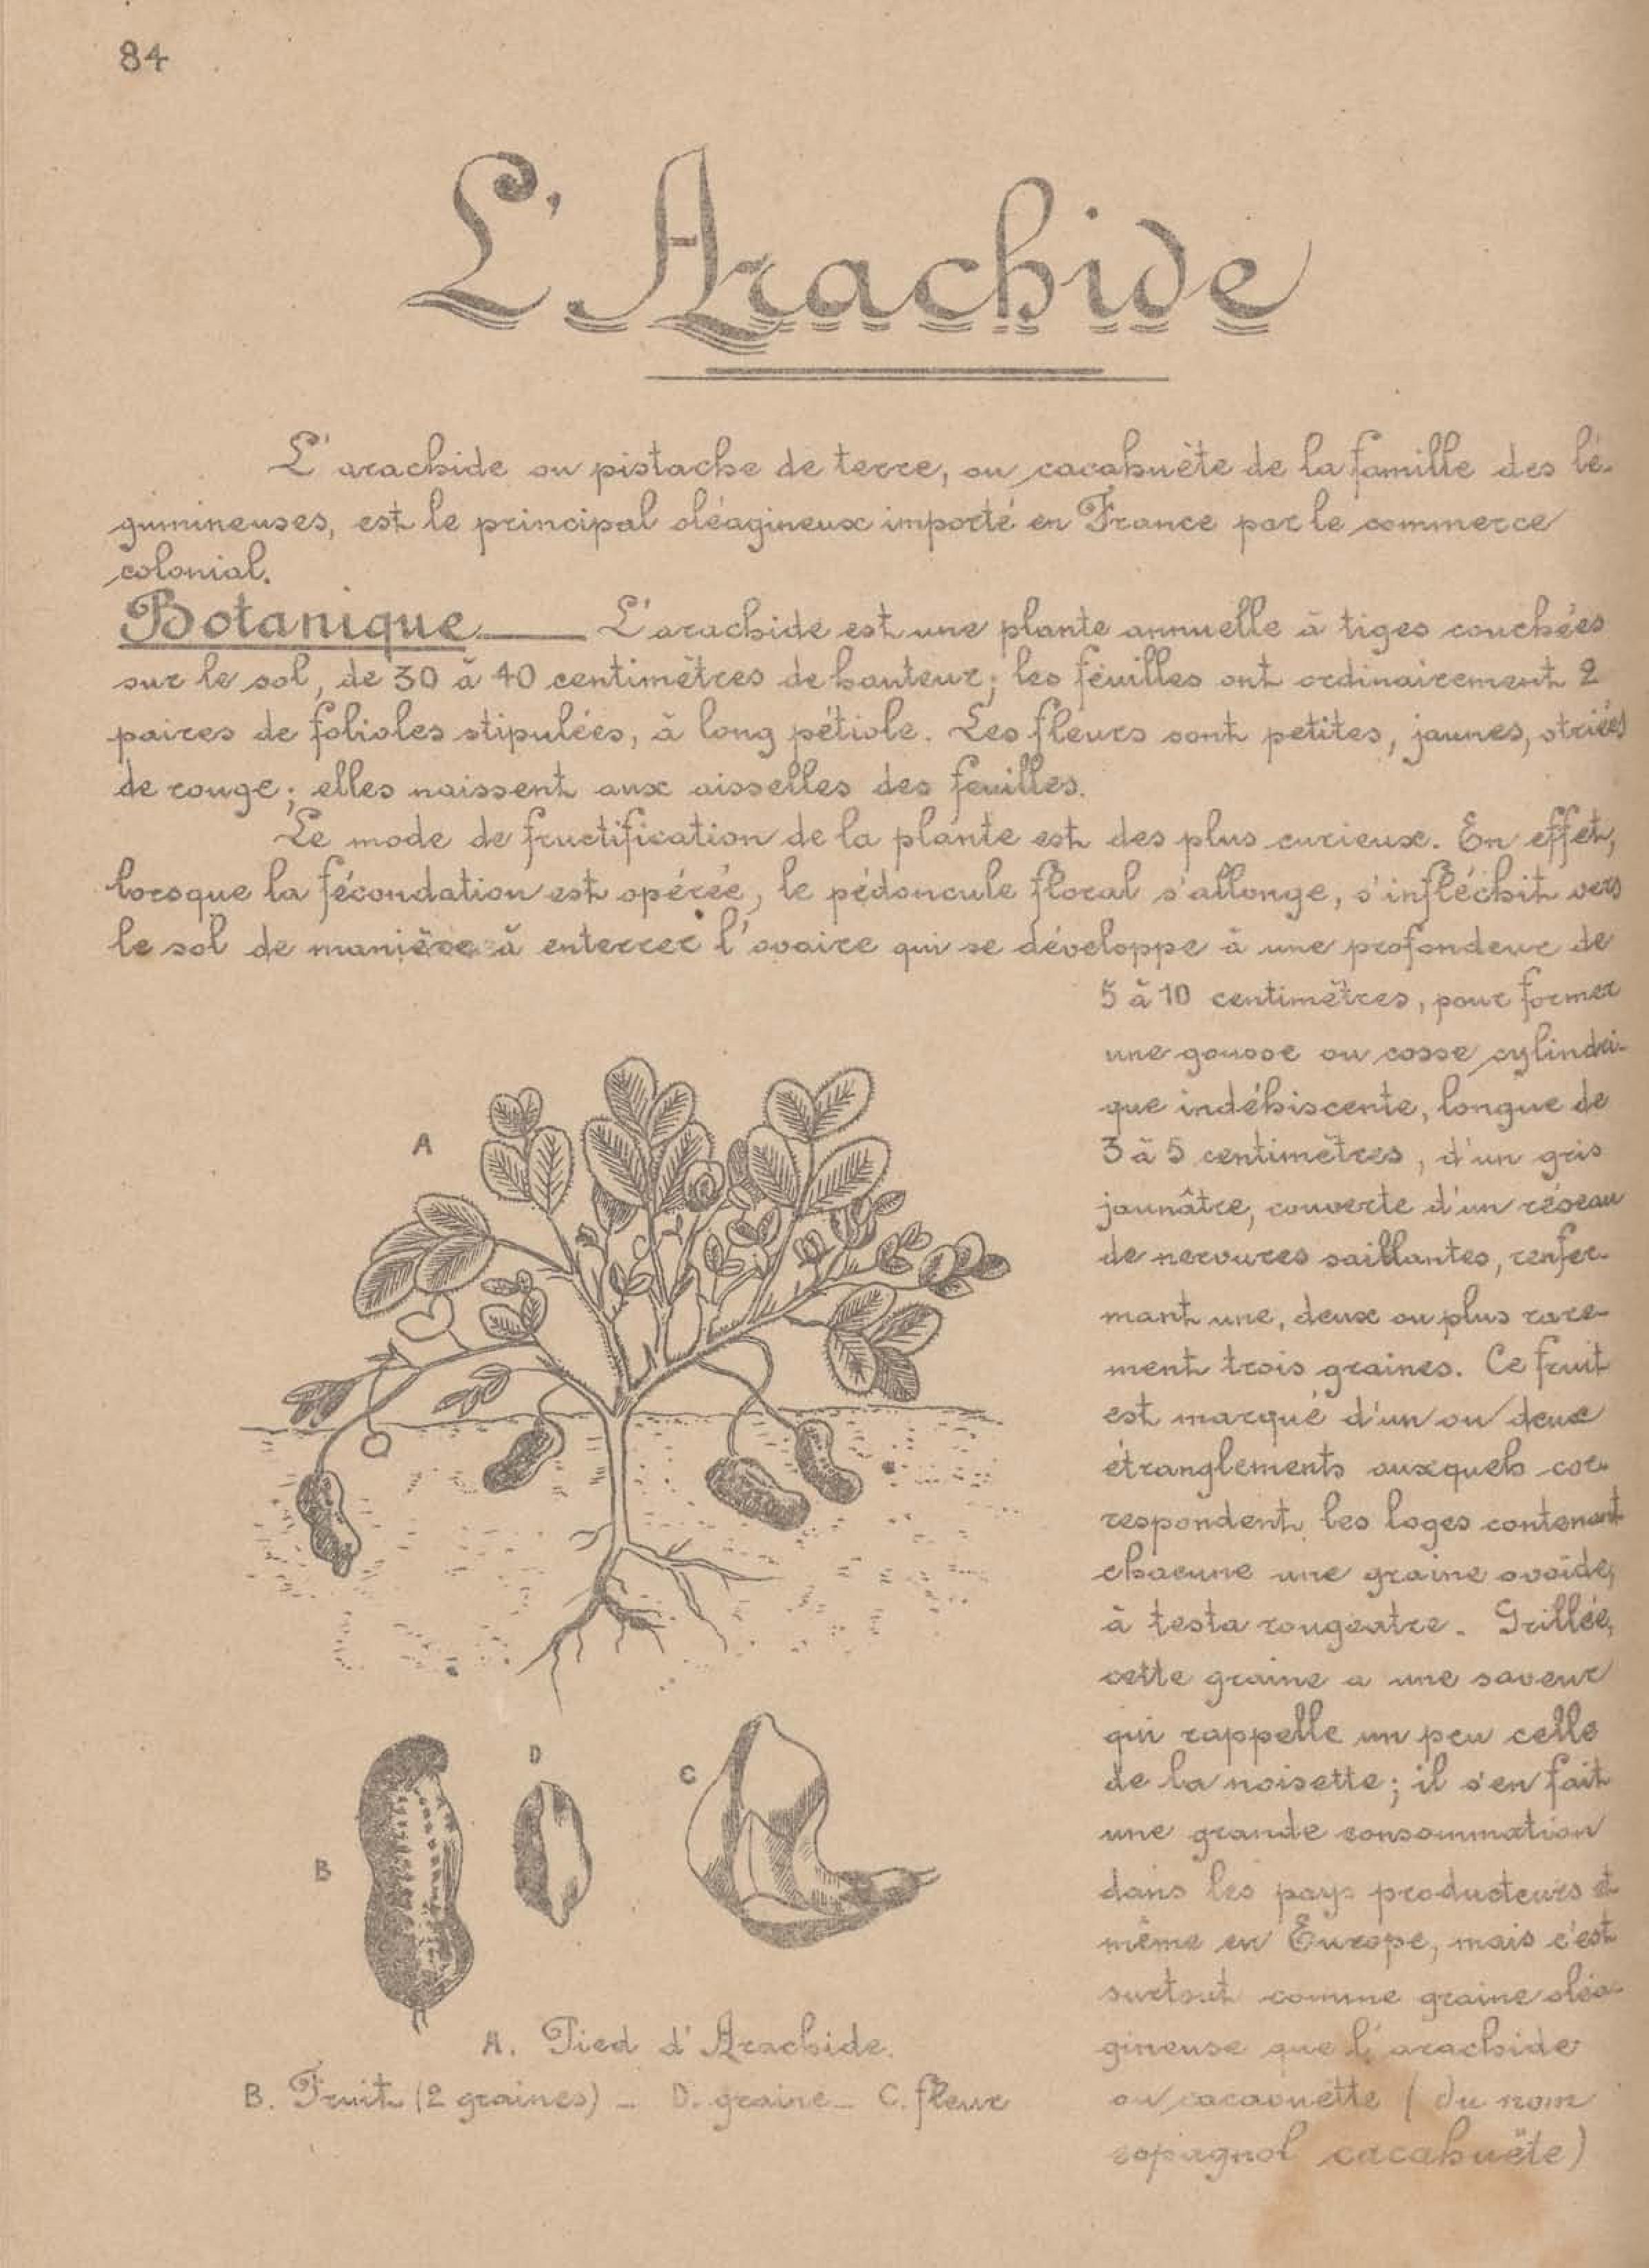 84
L'Arachide
L'arachide ou pistache de terre, ou cacahuète de la famille des lé-
gumineuses, est le principal oléagineux importé en France par le commerce
colonial.
Botanique — L'arachide est une plante annuelle à tiges couchées
sur le sol, de 30 à 40 centimètres de hauteur; les feuilles ont ordinairement 2
paires de folioles stipulées, à long pétiole. Les fleurs sont petites, jaunes, striées
de rouge; elles naissent aux aisselles des feuilles.
Le mode de fructification de la plante est des plus curieux. En effet,
lorsque la fécondation est opérée, le pédoncule floral s'allonge, s'infléchit vers
le sol de manière à enterrer l'ovaire qui se développe à une profondeur de
5 à 10 centimètres, pour former
une gousse ou cosse cylindri-
que indéhiscente, longue de
3 à 5 centimètres, d'un gris
jaunâtre, couverte d'un réseau
de nervures saillantes, renfer-
mant une, deux ou plus rare-
ment trois graines. Ce fruit
est marqué d'un ou deux
étranglements auxquels cor-
respondent les loges contenant
chacune une graine ovoïde,
à testa rougeatre. Grillée,
cette graine a une saveur
qui rappelle un peu celle
de la noisette; il s'en fait
une grande consommation
dans les pays producteurs et
même en Europe, mais c'est
surtout comme graine oléa-
gineuse que l'arachide
ou cacaouette (du nom
espagnol cacahuète)
A
B
D
C
A. Pied d'Arachide.
B. Fruit (2 graines) - D. graine - C. fleur